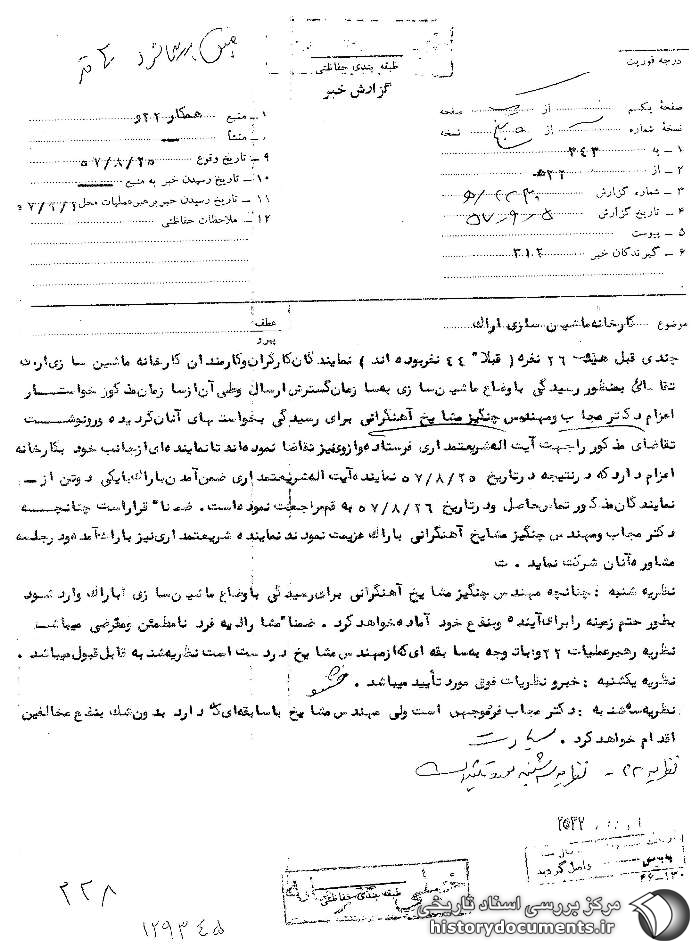 طبقه بندی حفاظتی
گزارش خبر
درجه فوریت
صفحهٔ یکم از صفحه
نسخهٔ شماره از نسخه
۱ ـ به ۳۴۳
۲ ـ از ۲۲ه
۳ ـ شماره گزارش
۴ ـ تاریخ گزارش ۵۷-۹-۵
۵ ـ پیوست
۶ ـ گیرندگان خبر ۳۱۲
منبع همکار ۲۲و
منشأ
۹ ـ تاریخ وقوع ۵۷/۸/۲۵
۱۰ ـ تاریخ رسیدن خبر به منبع
۱۱ ـ تاریخ رسیدن خبر برهبر عملیات محل
۱۲ ـ ملاحظات حفاظتی
موضوع کارخانه ماشین سازی اراک
عطف
پیرو
چندی قبل هیئت ۲۶ نفره (قبلا" ۴۴ نفر بوده اند) نمایندگان کارگران و کارمندان کارخانه ماشین سازی اراک
تقاضائی بمنظور رسیدگی باوضاع ماشین سازی به سازمان گسترش ارسال وطی آن از سازمان مذکور خواستار
اعزام دکتر مجاب و مهندس چنگیز مشایخ آهنگرانی برای رسیدگی بخواستهای آنان گردیده و رونوشت
تقاضای مذکور را جهت آیت اله شریعتمداری فرستاده و از وی نیز تقاضا نموده اند تا نماینده ای از جانب خود بکارخانه
اعزام دارد که در نتیجه در تاریخ ۵۷/۸/۲۵ نماینده آیت اله شریعتمداری ضمن آمدن باراک با یکی دو تن از ـ
نمایندگان مذکور تماس حاصل و در تاریخ ۵۷/۸/۲۶ به قم مراجعت نموده است . ضمنا" قرار است چنانچه
دکتر مجاب و مهندس چنگیز مشایخ آهنگرانی باراک عزیمت نمودند نماینده شریعتمداری نیز باراک آمده و در جلسه
مشاوره آنان شرکت نماید . ت
نظریه شنبه : چنانچه مهندس چنگیز مشایخ آهنگرانی برای رسیدگی باوضاع ماشین سازی باراک وارد شود
بطور حتم زمینه را برای آینده و بنفع خود آماده خواهد کرد . ضمنا" مشارالیه فرد نامطمئن و مغرضی میباشد
نظریه رهبر عملیات ۲۲و با توجه به سابقه ای که از مهندس مشایخ در دست است نظریه شنبه قابل قبول میباشد .
نظریه یکشنبه : خبر و نظریات فوق مورد تأیید میباشد .
نظریه سه شنبه : دکتر مجاب فرد موجهی است ولی مهندس مشایخ با سابقه ای که دارد بدون شک بنفع مخالفین
اقدام خواهد کرد .
نظریه ۲۲ - نظریه سه شنبه مورد تایید است
۲۵۳۷
بایگانی
داخل گردید
طبقه بندی حفاظتی
۲۲۸
۱۲۹۳۴۵
مرکز بررسی اسناد تاریخی
historydocuments.ir